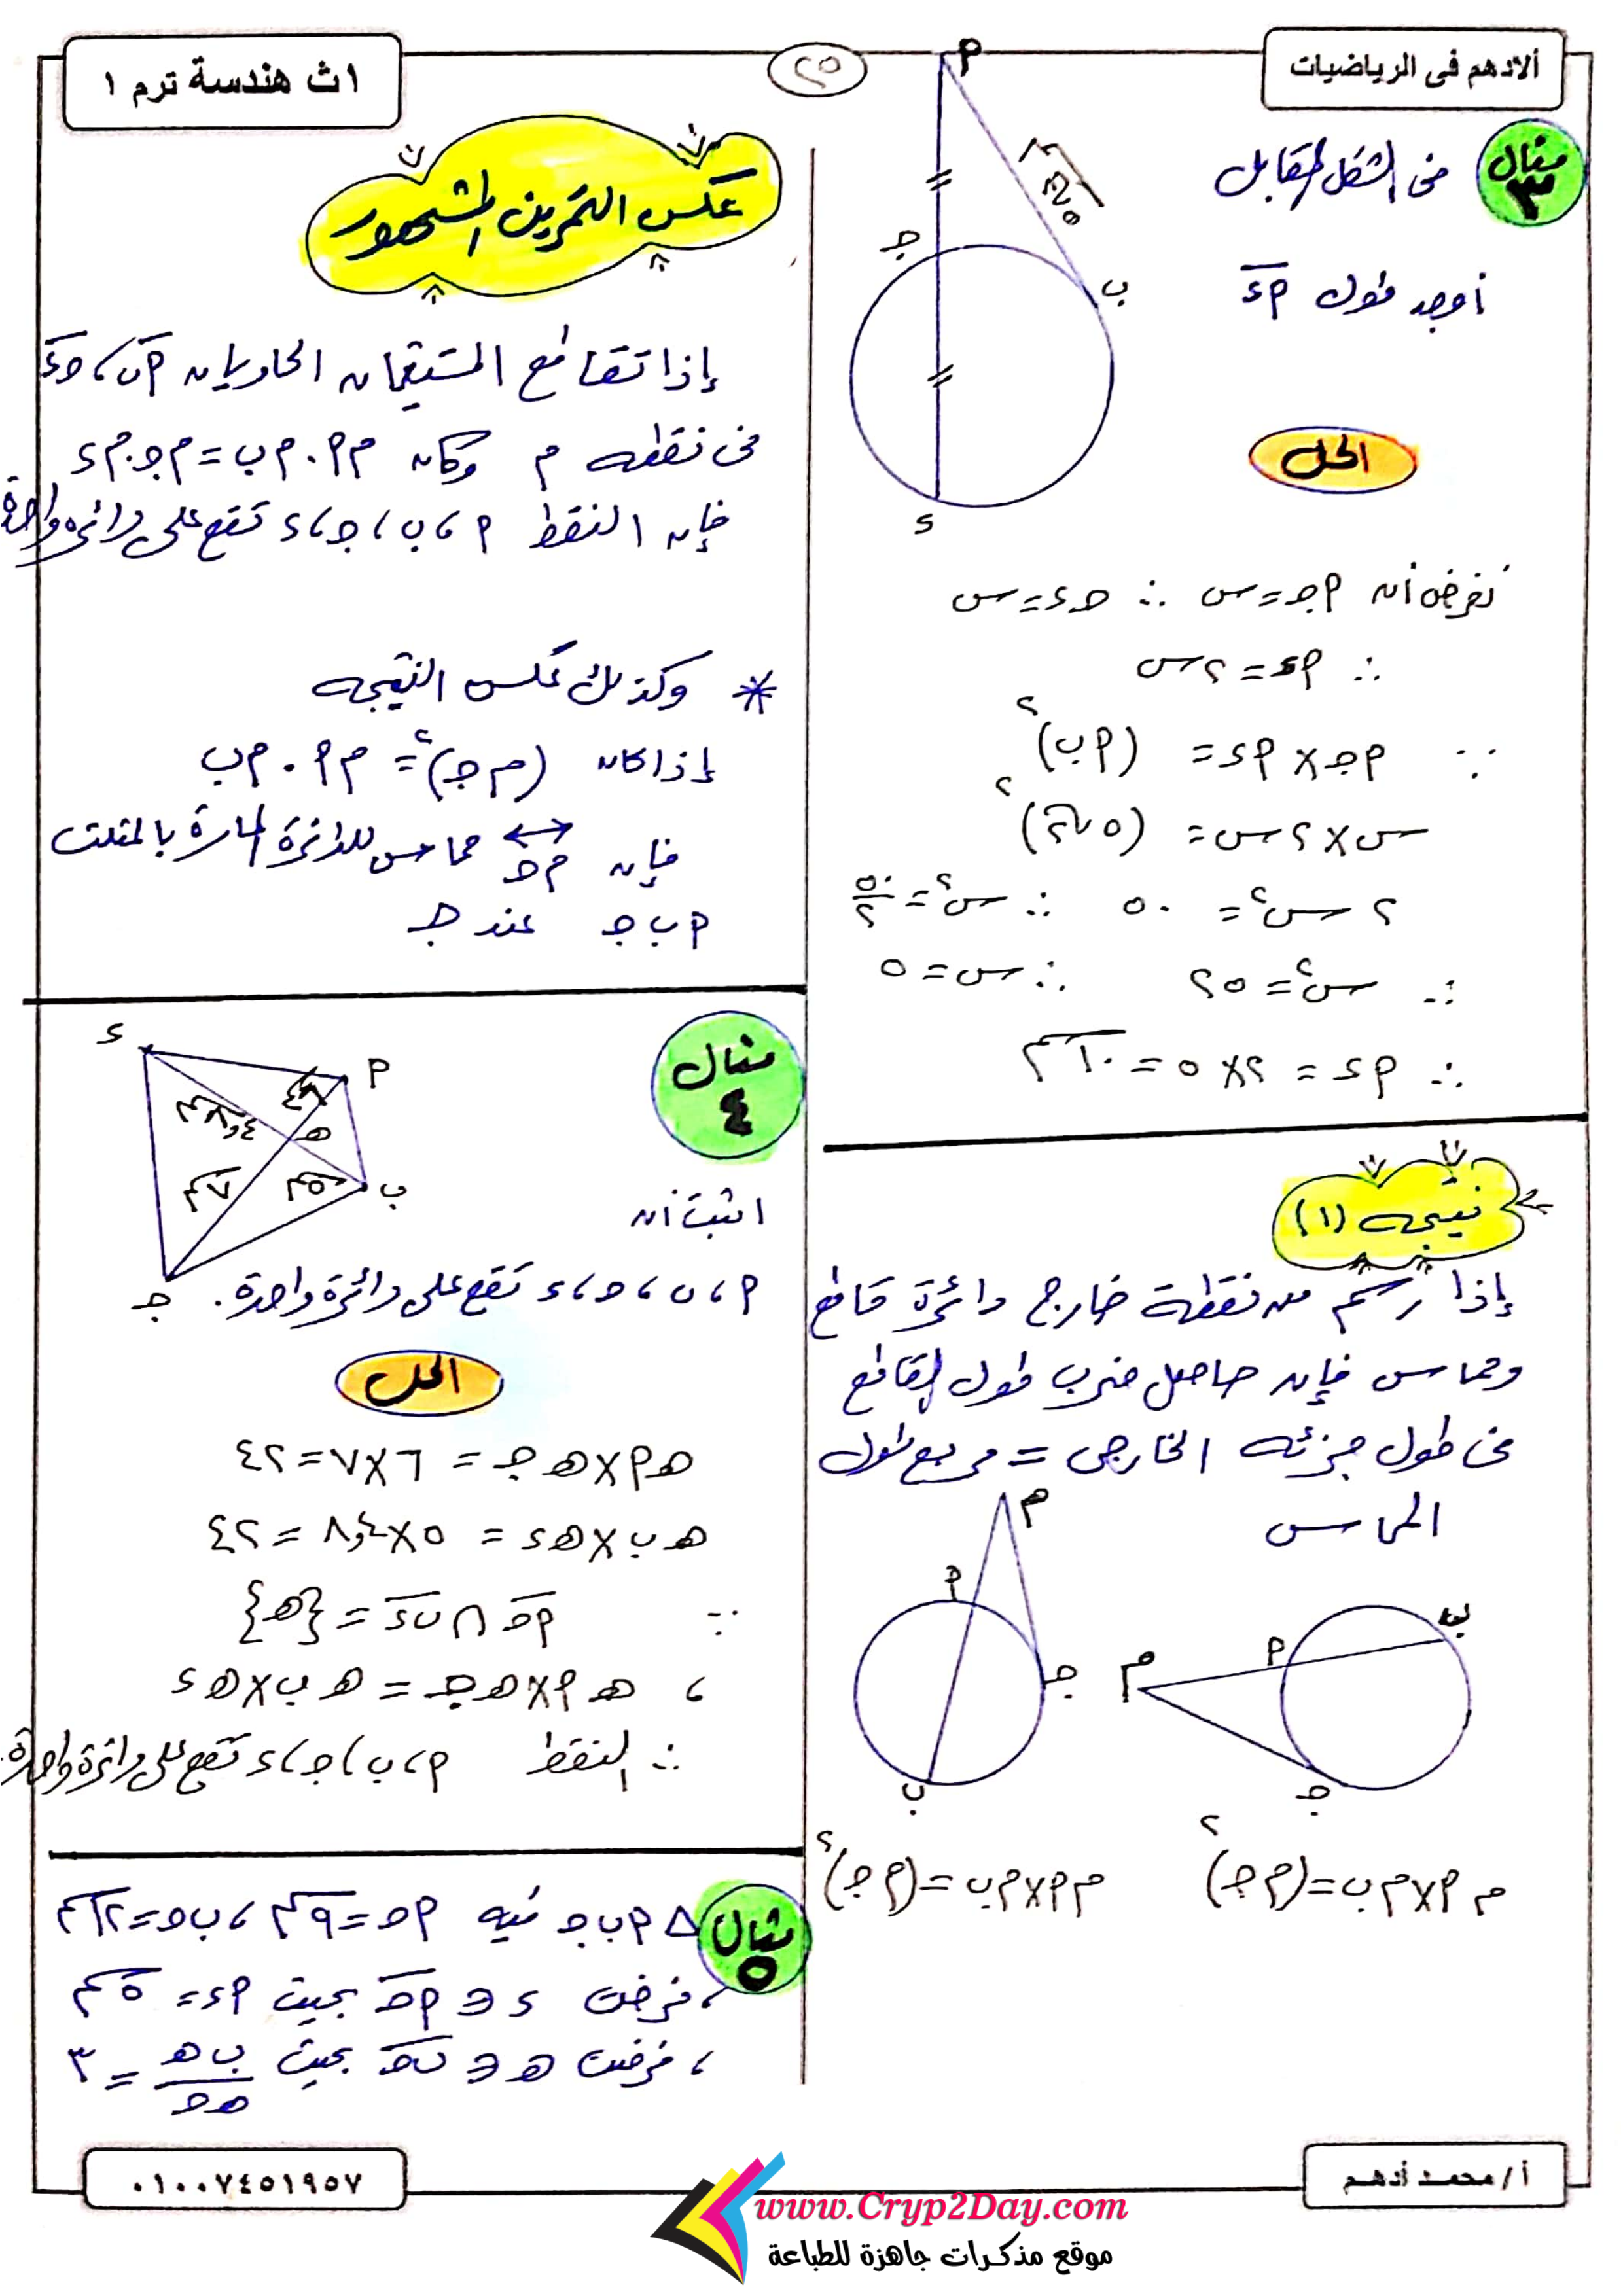 ألادهم فى الرياضيات
٢٥
١ث هندسة ترم ١
مثال ٣
فى الشكل المقابل
أوجد طول أد
أ
٥√٢ سم
جـ
ب
د
الحل
نفرض أن أجـ = س ∴ جـد = س
∴ أد = ٢س
∵ أجـ × أد = (أب)٢
س × ٢س = (٥√٢)٢
٢س٢ = ٥٠ ∴ س٢ = ٥٠/٢
∴ س٢ = ٢٥ ∴ س = ٥
∴ أد = ٢ × ٥ = ١٠ سم
نتيجه (١)
إذا رسم من نقطة خارج دائرة قاطع
ومماس فإن حاصل ضرب طول القاطع
فى طول جزئه الخارجى = مربع طول
المماس
م
أ
جـ
ب
ب
أ
م
جـ
م أ × م ب = (م جـ)٢
م أ × م ب = (م جـ)٢
عكس التمرين المشهور
إذا تقاطع المستقيمان الحاويان أب ، جـد
فى نقطه م وكان م أ . م ب = م جـ . م د
فإن النقط أ ، ب ، جـ ، د تقع على دائرة واحدة
* وكذلك عكس النتيجه
إذا كان (م جـ)٢ = م أ . م ب
فإن م جـ مماس للدائرة المارة بالمثلث
أ ب جـ عند جـ
مثال ٤
د
أ
٦سم
٨,٤ سم
هـ
٧سم
٥سم
ب
جـ
اثبت أن
أ ، ب ، جـ ، د تقع على دائرة واحدة.
الحل
هـ أ × هـ جـ = ٦ × ٧ = ٤٢
هـ ب × هـ د = ٥ × ٨,٤ = ٤٢
∵ أجـ ∩ ب د = {هـ}
، هـ أ × هـ جـ = هـ ب × هـ د
∴ النقط أ ، ب ، جـ ، د تقع على دائرة واحدة.
مثال ٥
△ أ ب جـ فيه أجـ = ٩سم ، ب جـ = ١٢سم
، فرضت د ∈ أجـ بحيث أد = ٥سم
، فرضت هـ ∈ ب جـ بحيث ب هـ / هـ جـ = ٣
أ/ محمد أدهم
٠١٠٠٧٤٥١٩٥٧
www.Cryp2Day.com
موقع مذكرات جاهزة للطباعة